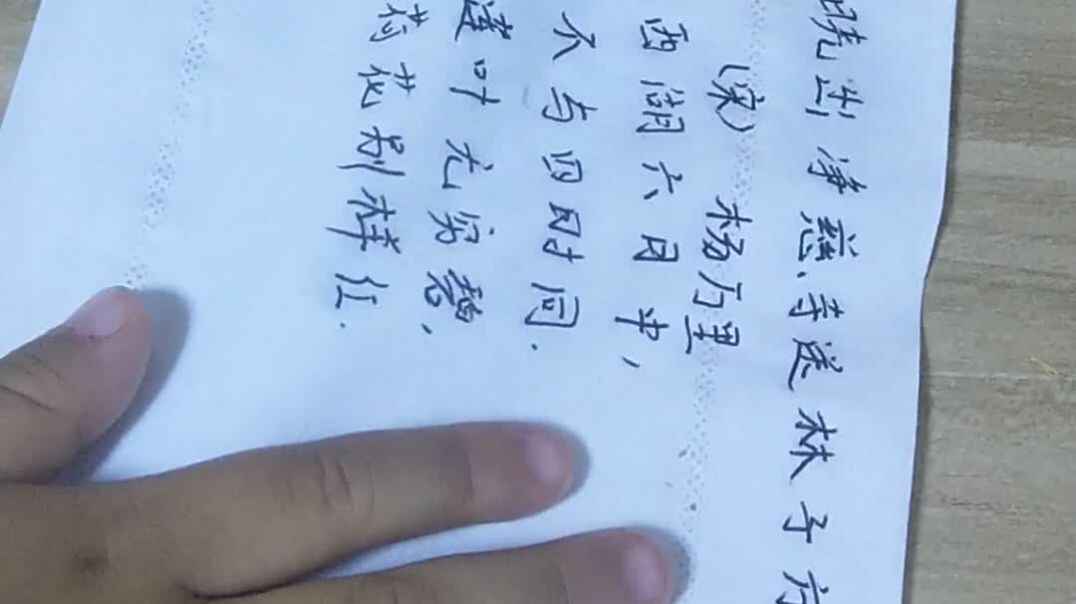 晓出净慈寺送林子方
(宋) 杨万里
西湖六月中,
不与四时同.
莲叶无穷碧,
荷花别样红.